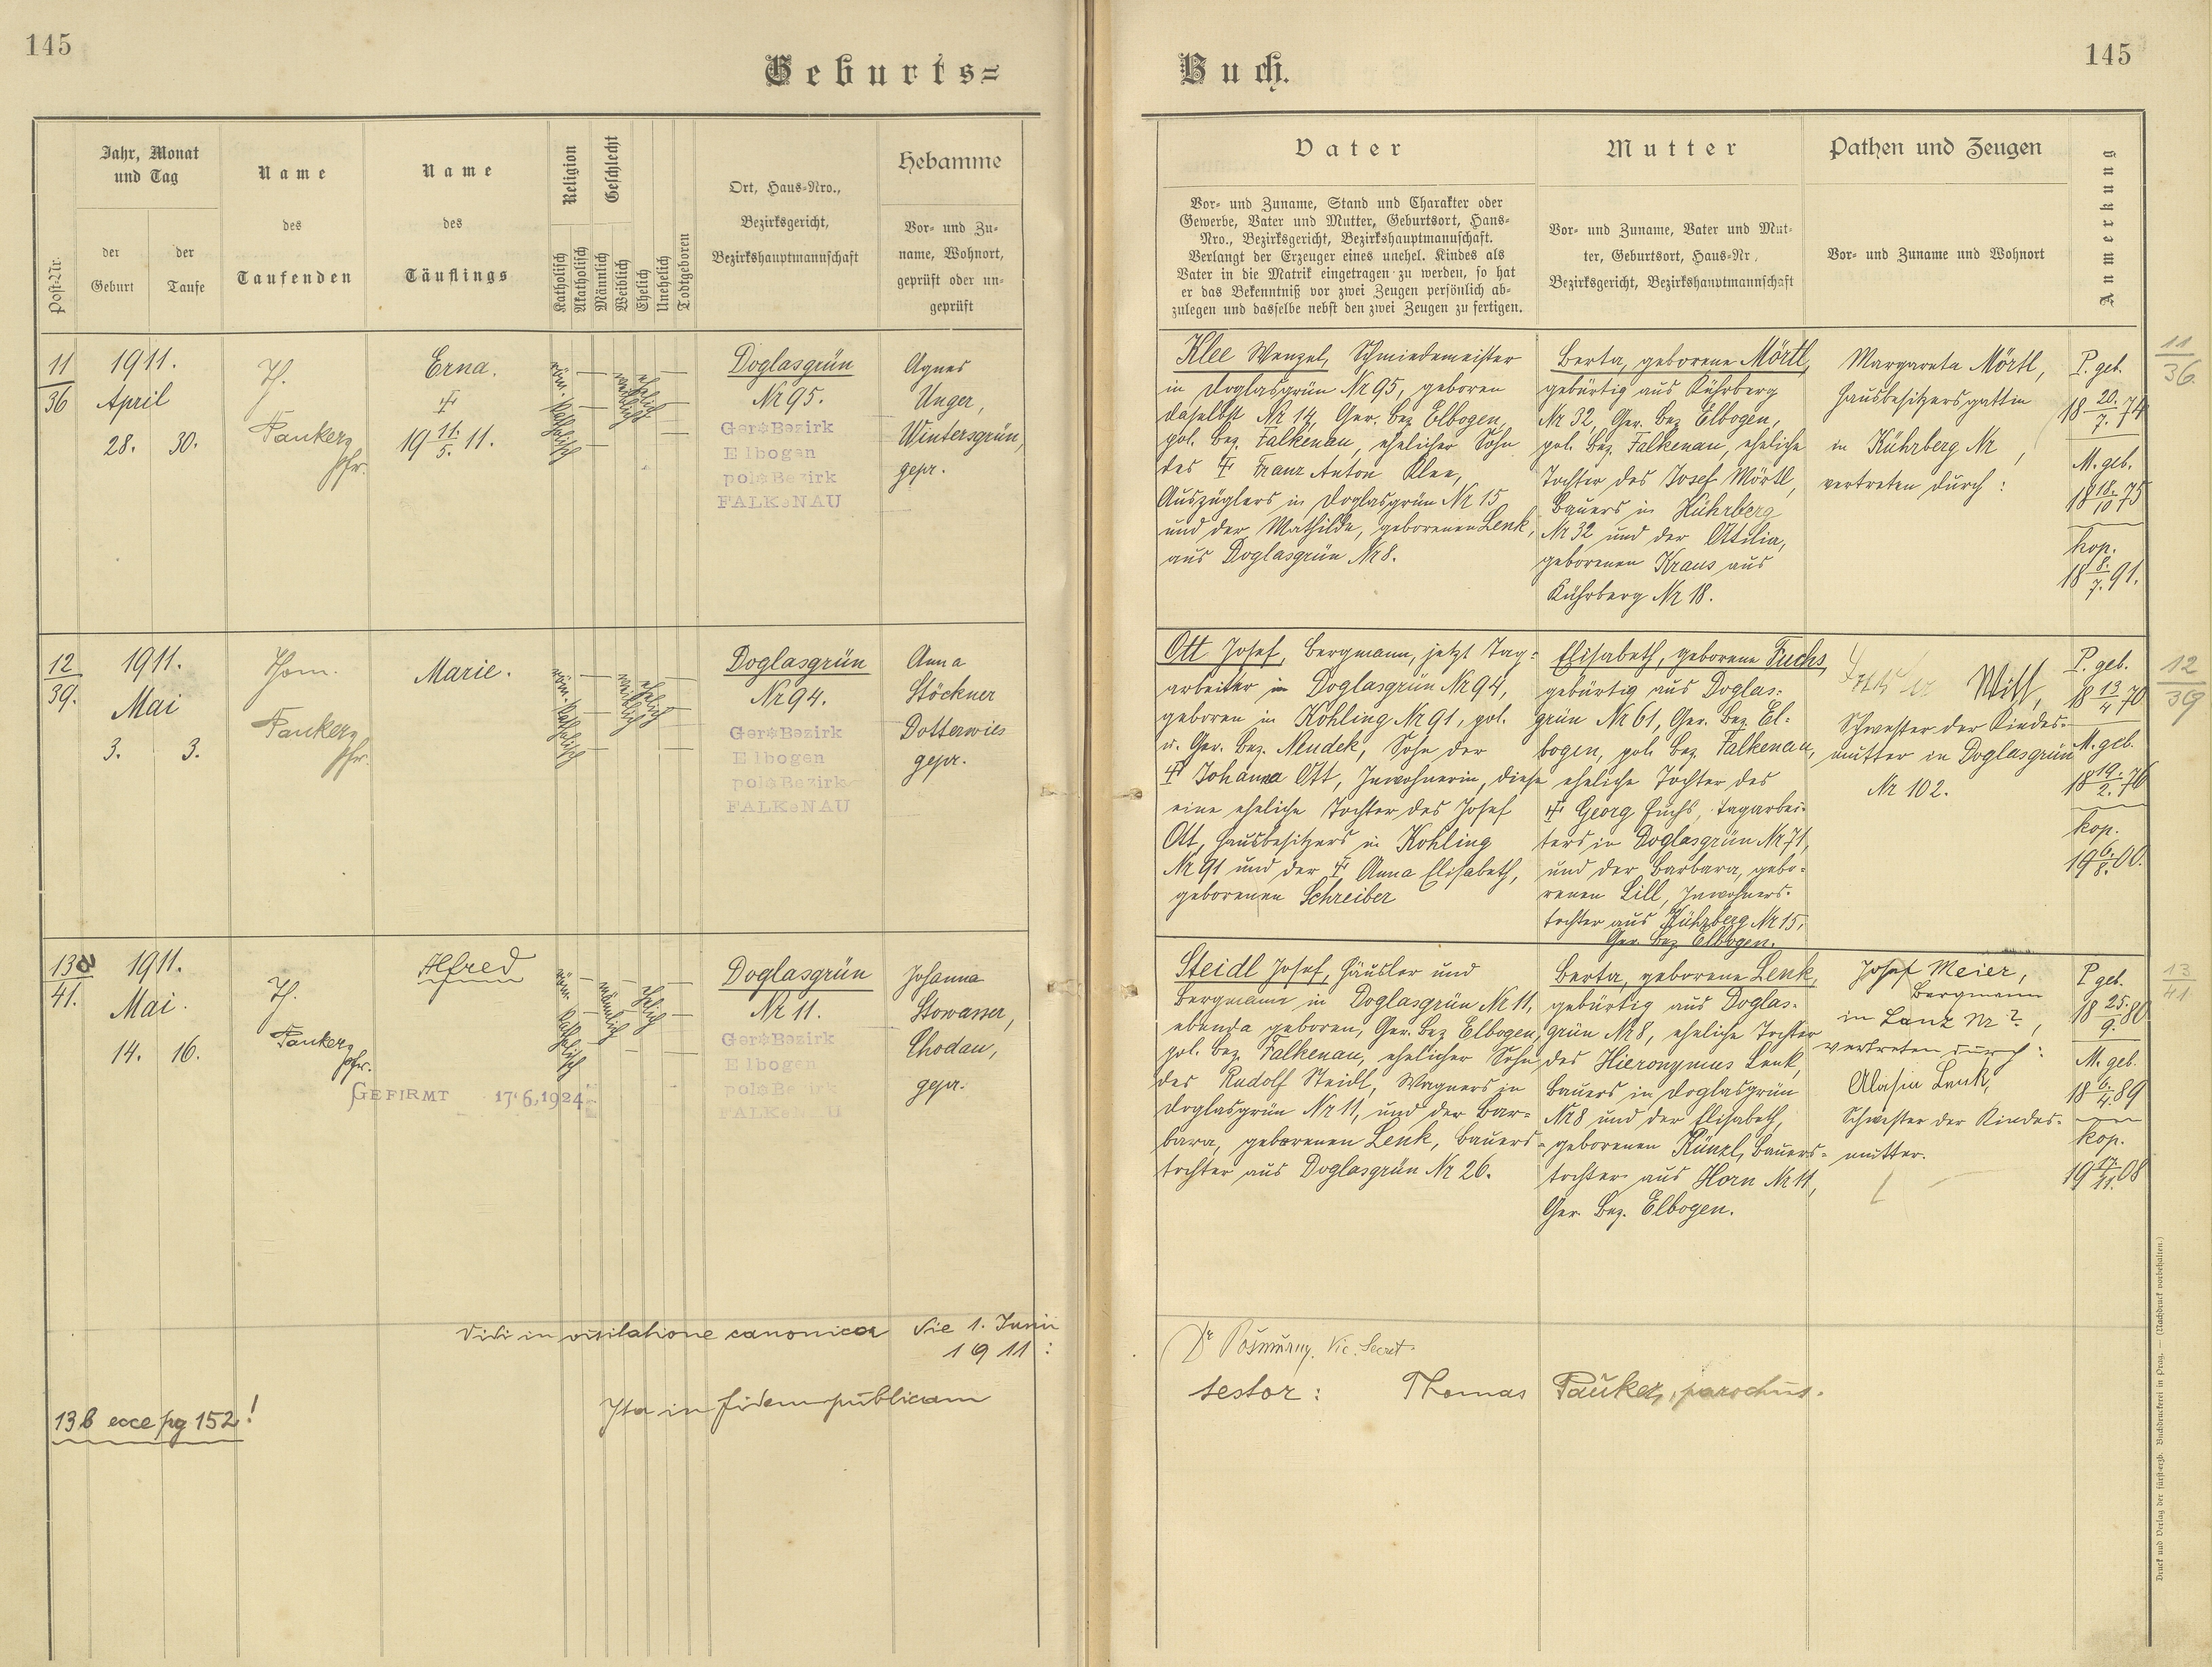 145
Geburts=
Jahr, Monat
und Tag
Name
Name
Religion
Geschlecht
Ort, Haus=Nro.,
Hebamme
Post=Nr.
der
Geburt
der
Taufe
des
Taufenden
des
Täuflings
Katholisch
Akatholisch
Männlich
Weiblich
Ehelich
Unehelich
Todtgeboren
Bezirksgericht,
Bezirkshauptmannschaft
Vor= und Zu=
name, Wohnort,
geprüft oder un=
geprüft
11
36
1911.
April
28. 30.
Th.
Pauker,
Pfr.
Erna.
19 11./5. 11.
röm. katholisch
weiblich
ehelich
Doglasgrün
Nr 95.
Ger. Bezirk
Elbogen
pol. Bezirk
FALKeNAU
Agnes
Unger,
Wintersgrün,
gepr.
12
39.
1911.
Mai
3. 3.
Thom.
Pauker,
Pfr.
Marie.
röm. katholisch
weiblich
ehelich
Doglasgrün
Nr 94.
Ger. Bezirk
Elbogen
pol. Bezirk
FALKeNAU
Anna
Stöckner
Dotterwies
gepr.
13a
41.
1911.
Mai.
14. 16.
Th.
Pauker,
Pfr.
Alfred
GEFIRMT 17.6.1924
röm. katholisch
männlich
ehelich
Doglasgrün
Nr 11.
Ger. Bezirk
Elbogen
pol. Bezirk
FALKeNAU
Johanna
Stowasser,
Chodau,
gepr.
Vidi in visitatione canonica die 1. Junii
1911:
Ita in fidem publicam
13b ecce pg 152!
Buch.
145
Vater
Mutter
Pathen und Zeugen
Anmerkung
Vor= und Zuname, Stand und Charakter oder
Gewerbe, Vater und Mutter, Geburtsort, Haus=
Nro., Bezirksgericht, Bezirkshauptmannschaft.
Verlangt der Erzeuger eines unehel. Kindes als
Vater in die Matrik eingetragen zu werden, so hat
er das Bekenntniß vor zwei Zeugen persönlich ab=
zulegen und dasselbe nebst den zwei Zeugen zu fertigen.
Vor= und Zuname, Vater und Mut=
ter, Geburtsort, Haus=Nr.,
Bezirksgericht, Bezirkshauptmannschaft
Vor= und Zuname und Wohnort
Klee Wenzel, Schmiedemeister
in Doglasgrün Nr 95, geboren
daselbst Nr 14, Ger. Bez. Elbogen,
pol. Bez. Falkenau, ehelicher Sohn
des Franz Anton Klee,
Auszüglers in Doglasgrün Nr 15
und der Mathilde, geborenen Lenk,
aus Doglasgrün Nr 8.
Berta, geborene Mörtl,
gebürtig aus Kührberg
Nr 32, Ger. Bez. Elbogen,
pol. Bez. Falkenau, eheliche
Tochter des Josef Mörtl,
Bauers in Kührberg
Nr 32 und der Ottilia,
geborenen Kraus aus
Kührberg Nr 18.
Margareta Mörtl,
Hausbesitzersgattin
in Kührberg Nr ,
vertreten durch:
P. geb.
18 20./7. 74
M. geb.
18 18./10 75
kop.
18 8./7. 91.
11
36.
Ott Josef, Bergmann, jetzt Tag=
arbeiter in Doglasgrün Nr 94,
geboren in Kohling Nr 91, pol.
u. Ger. Bez. Neudek, Sohn der
Johanna Ott, Inwohnerin, diese
eine eheliche Tochter des Josef
Ott, Hausbesitzers in Kohling
Nr 91 und der Anna Elisabeth,
geborenen Schreiber
Elisabeth, geborene Fuchs,
gebürtig aus Doglas=
grün Nr 61, Ger. Bez. El=
bogen, pol. Bez. Falkenau,
eheliche Tochter des
Georg Fuchs, Tagarbei=
ters in Doglasgrün Nr 71,
und der Barbara, gebo=
renen Lill, Inwohners=
tochter aus Kührberg Nr 15,
Ger. Bez. Elbogen.
Witt,
Schwester der Kindes=
mutter in Doglasgrün
Nr 102.
P. geb.
18 13/4 70
M. geb.
18 19./2. 76
kop.
19 6./8. 00.
12
39
Steidl Josef, Häusler und
Bergmann in Doglasgrün Nr 11,
ebenda geboren, Ger. Bez. Elbogen,
pol. Bez. Falkenau, ehelicher Sohn
des Rudolf Steidl, Wagners in
Doglasgrün Nr 11, und der Bar=
bara, geborenen Lenk, Bauers=
tochter aus Doglasgrün Nr 26.
Berta, geborene Lenk,
gebürtig aus Doglas=
grün Nr 8, eheliche Tochter
des Hieronymus Lenk,
Bauers in Doglasgrün
Nr 8 und der Elisabeth,
geborenen Künzl, Bauers=
tochter aus Horn Nr 11,
Ger. Bez. Elbogen.
Josef Meier,
Bergmann
in Lanz Nr ?,
vertreten durch:
Aloisia Lenk,
Schwester der Kindes=
mutter.
P. geb.
18 25./9. 80
M. geb.
18 6./4. 89
kop.
19 17./11. 08
13
41
Dr Pošmurny, Vic. Secret.
testor: Thomas Pauker, parochus.
Druck und Verlag der fürst=erzb. Buchdruckerei in Prag. — (Nachdruck vorbehalten.)